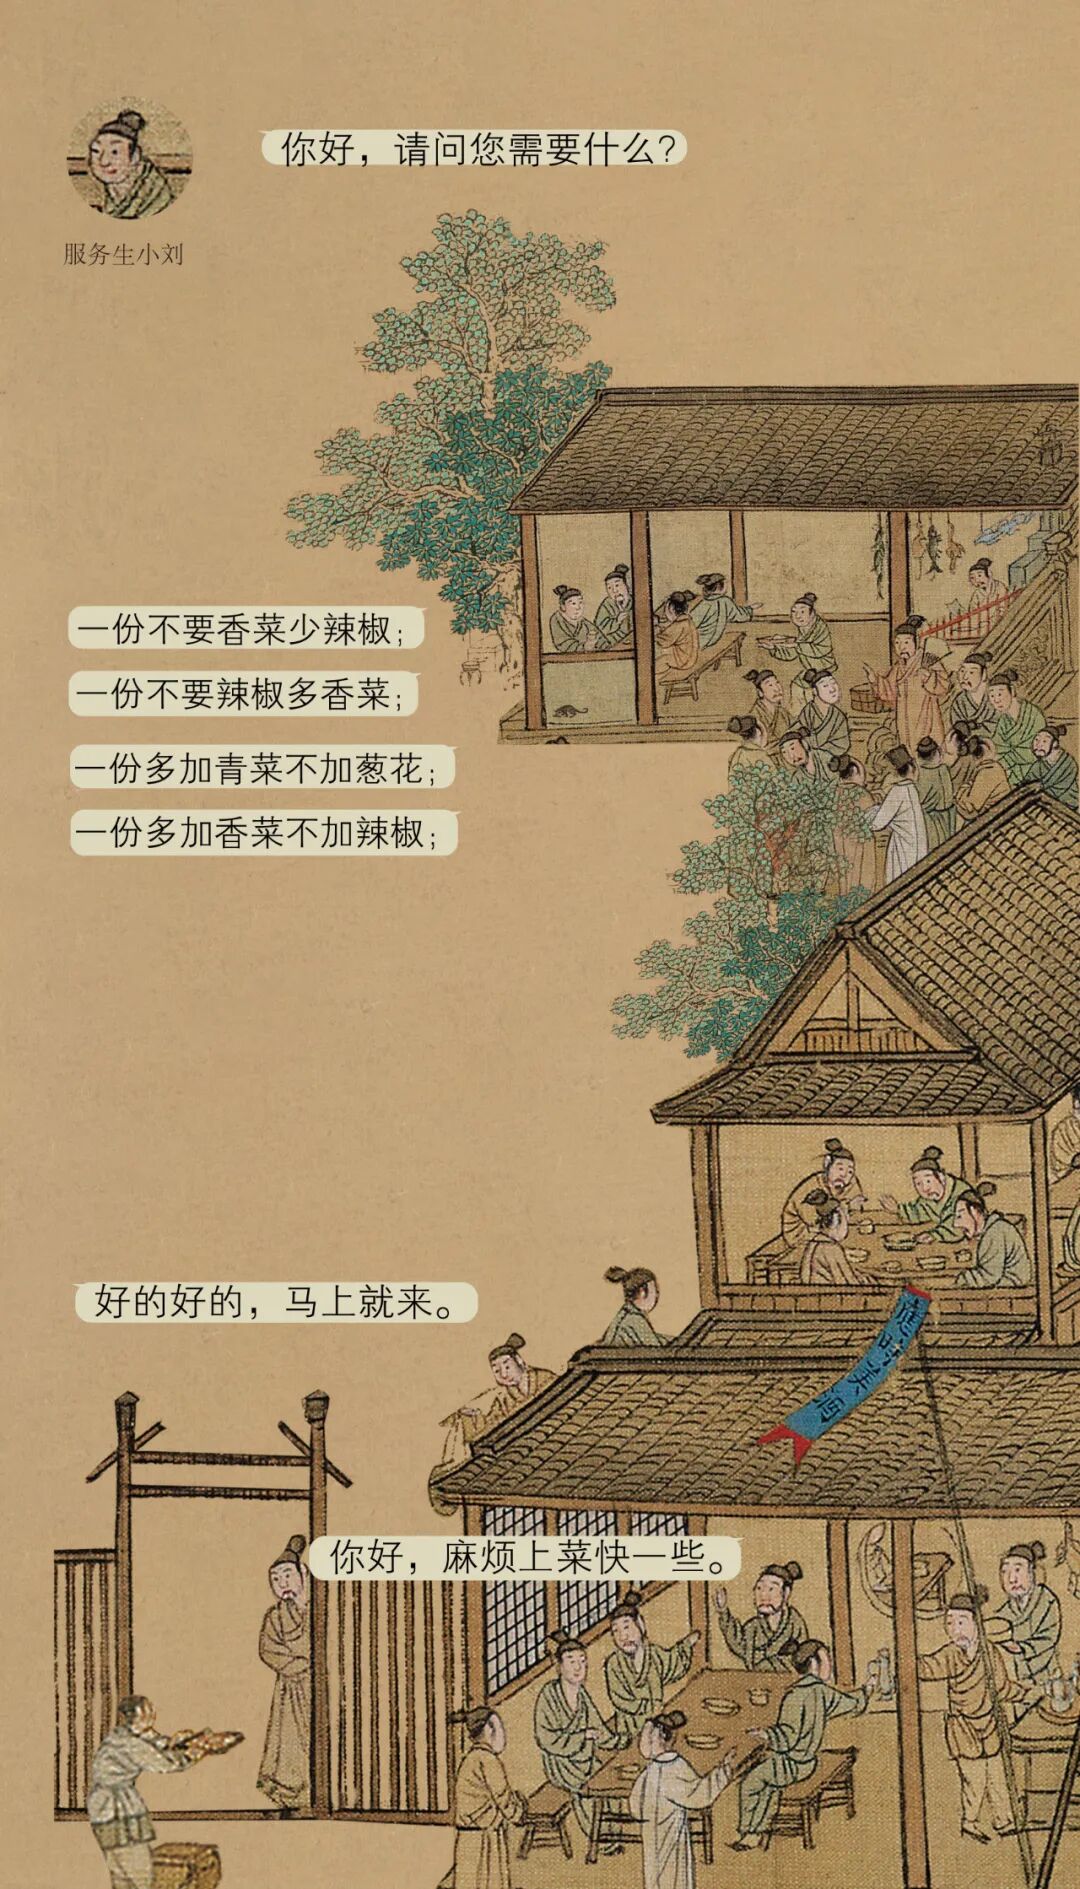 你好，请问您需要什么？
服务生小刘
一份不要香菜少辣椒；
一份不要辣椒多香菜；
一份多加青菜不加葱花；
一份多加香菜不加辣椒；
好的好的，马上就来。
你好，麻烦上菜快一些。